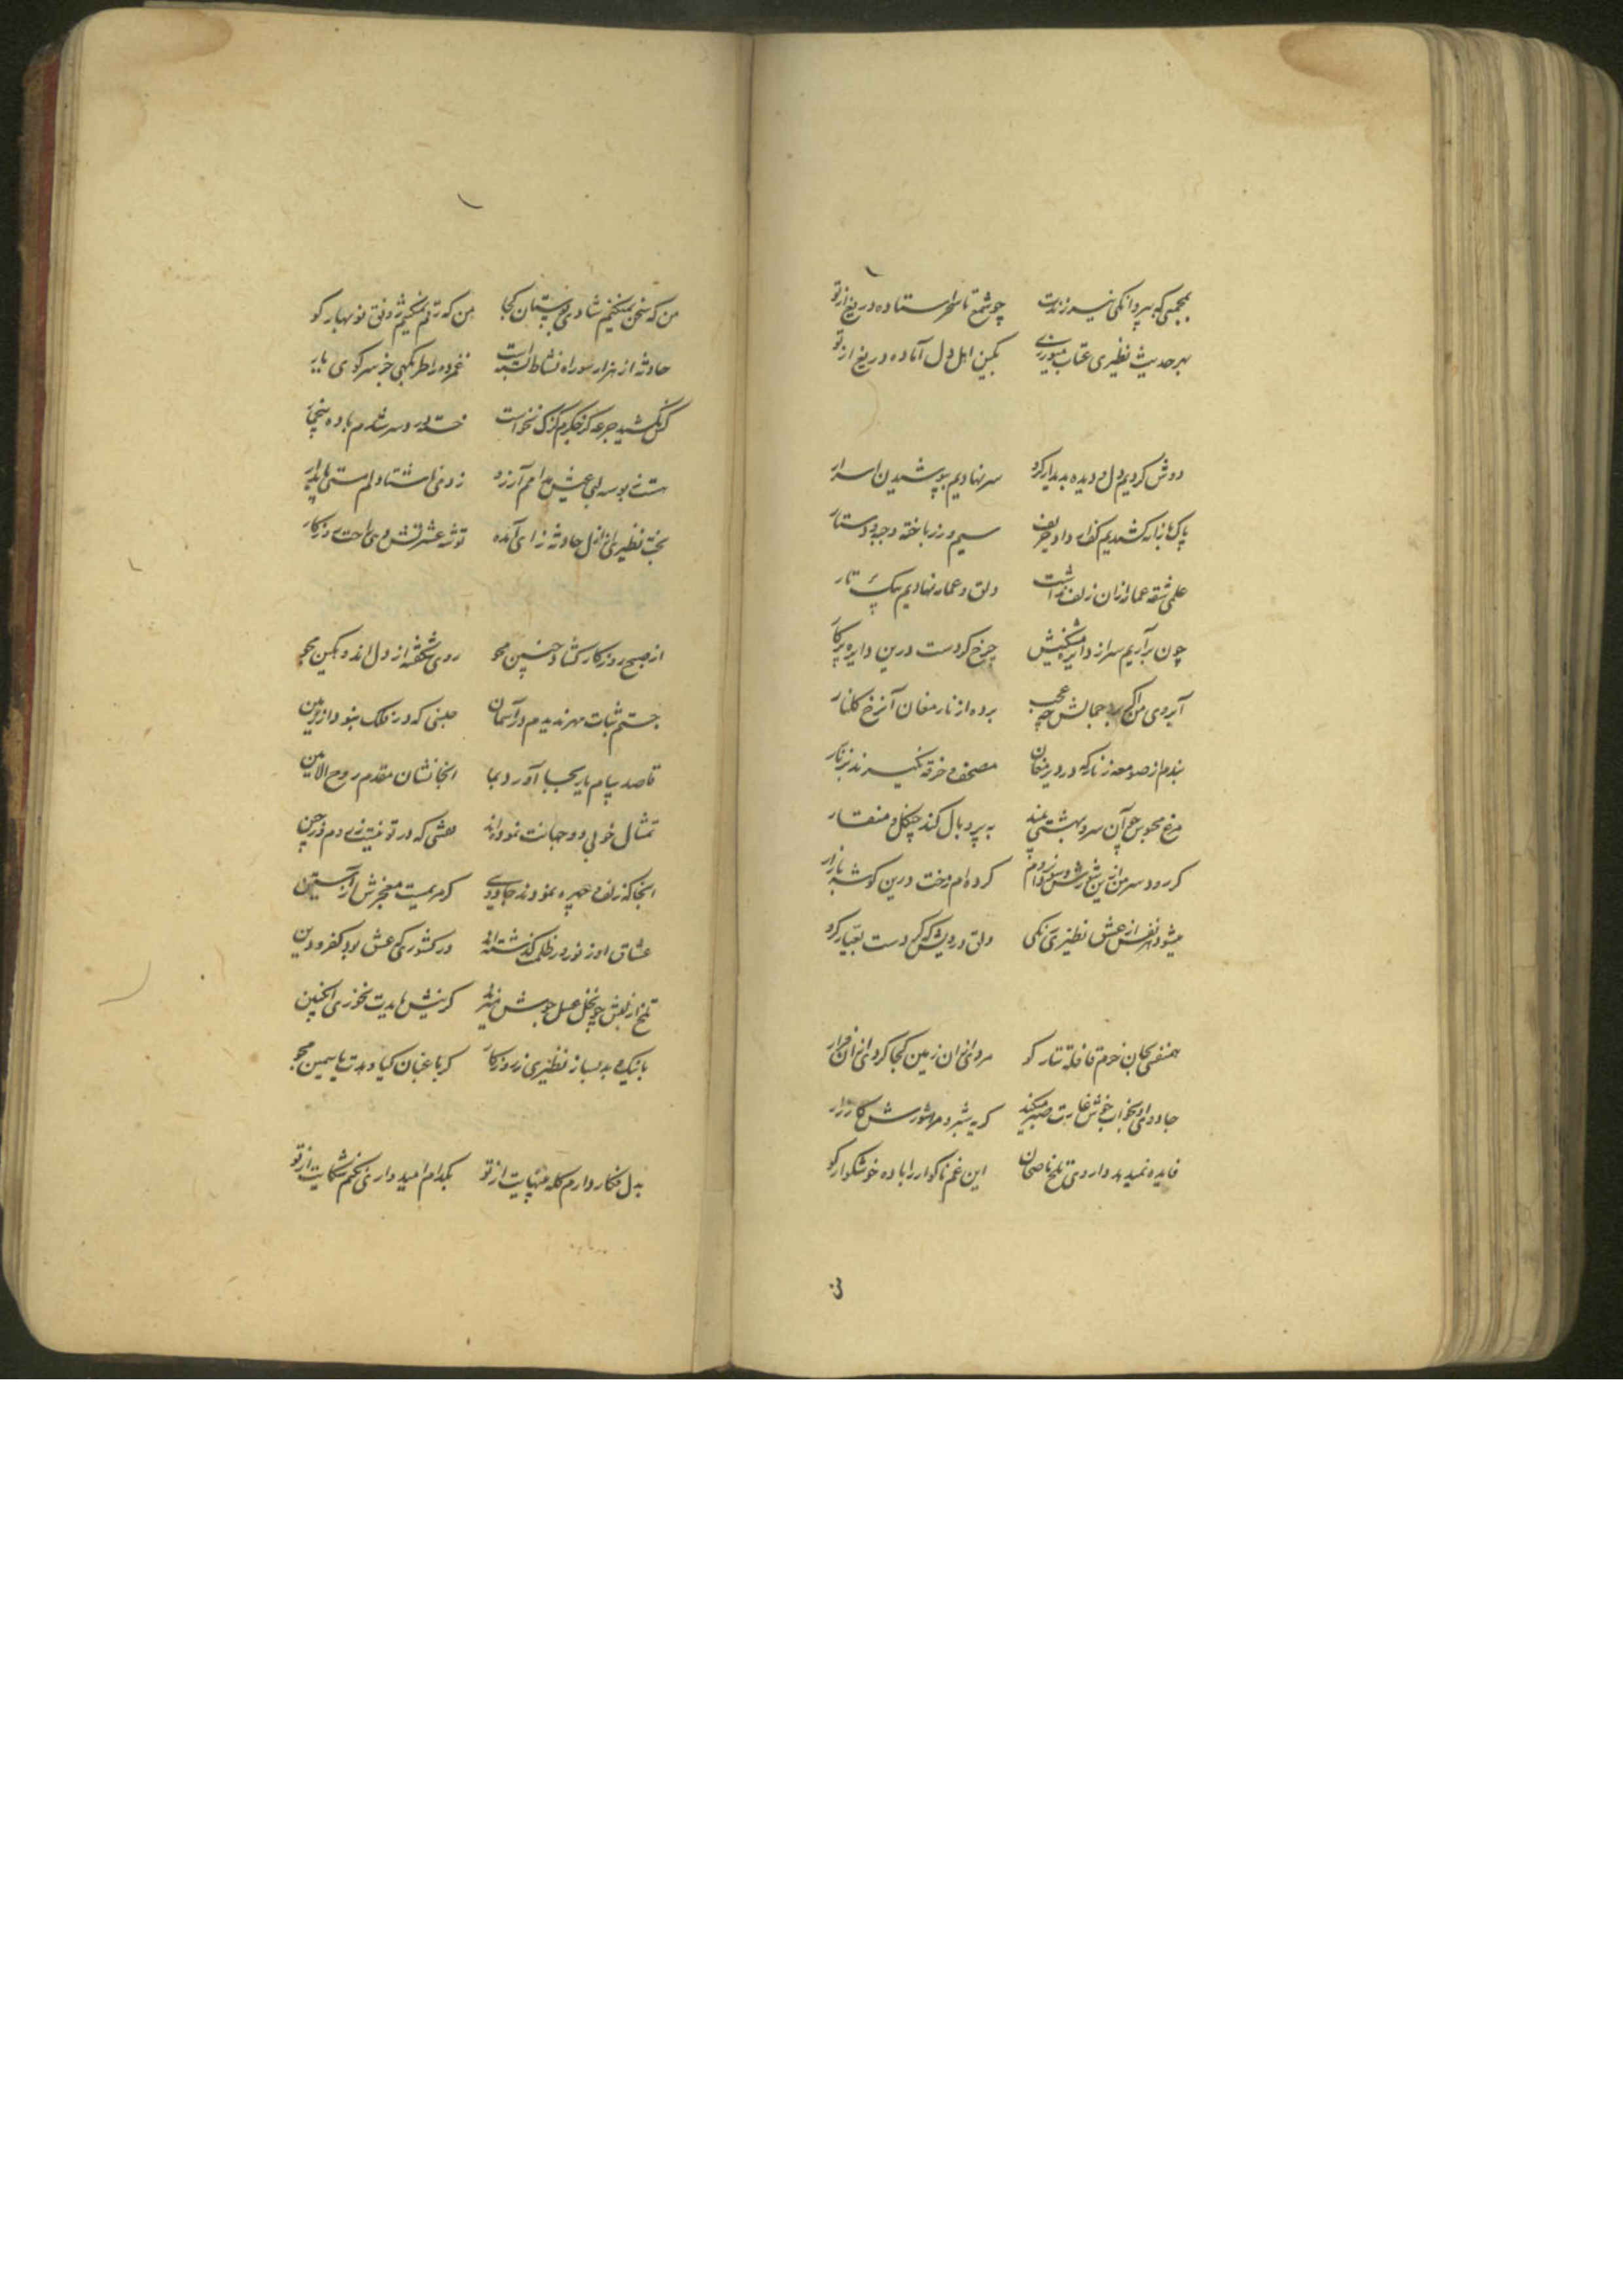 بمجمعی که بپروانگی نیرزندت چو شمع تا سحر استاده دریغ از تو
بهر حدیث نظیری عتاب میورزی بکین اهل دل آماده دریغ از تو
دوش کردیم دل و دیده بدیدار گرو سر نهادیم بپوشیدن اسرار
پاک بازانه کشیدیم سیم و زر باخته وجد و دستار
علمی شقه عمار ازان زلف نداشت دلق و عمار نهادیم بیک تار
چون برآریم سر از دایره چرخ کردست درین دایره پرکار
آبروی من اگر برد جمالش چه عجب برده از نار مغان آن رخ گلنار
نبدم از صومعه زنار که در دیر مغان مصحف و خرقه نگیرند بزنار
مرغ محبوس چو آن سرو بهشتی بیند به پر و بال کند چنگل و منقار
گر رود سر من ازین شورش و سر کرده ام رخت درین گوشه بازار
میشود نفس از عشق نظیری نیکی دلق درویش که کردست بعیار گرو
همنفسی بجان خرم قافله تتار کو مردی ازان زمین کجا گردی ازان
جادوی او بخواب خوش غارت صبر میکند گریه شبرو مرا شورش کارزار
فایده نمیدهد داروی تلخ ناصحان این غم ناگوار را باده خوشگوار کو
من که سخن نمیکنم شادی بوستان کجا من که ترنم نمیکنم رونق نوبهار کو
حادثه از هزار سو راه نشاط بسته است غمزده را طربگهی جز سر کوی یار
کس نکشید جرعه کز جگرم گزک نخواست خسته درد سر شدم باده بیخمار
مستی بوسه لبی عیش مدامم آرزو زود می شناد لم مستی پایدار
بخت نظیری از ازل حادثه زای آمده توشه عشرتش راحت روزکار
از صبح روزکار گشاد جبین مجو روی شکفته از دل اندوهگین مجو
جستم ثبات مهر ندیدم در آسمان جنسی که در فلک نبود از زمین
قاصد پیام یار بجا آورد بما آنجا نشان مقدم روح الامین
تمثال خوبی دو جهانت نموده اند نقشی که در تو نیست ز مردم در چین
آنجا که زلف و چهره نمودند جادویی گر مریمیست معجزش از آستین
عشاق او ز نور و ز ظلمت گذشته اند در کشوری که عشق بود کفر و دین
تلخ از لبش چو نخل عسل جوش میزند گر نیش بایدت نخوری انگبین
با نیک و بد بساز نظیری ز روزکار گر باغبان گیا دهدت یاسمین مجو
بدل فگار دارم گله بی نهایت از تو بکدام امیدواری نکنم شکایت از تو